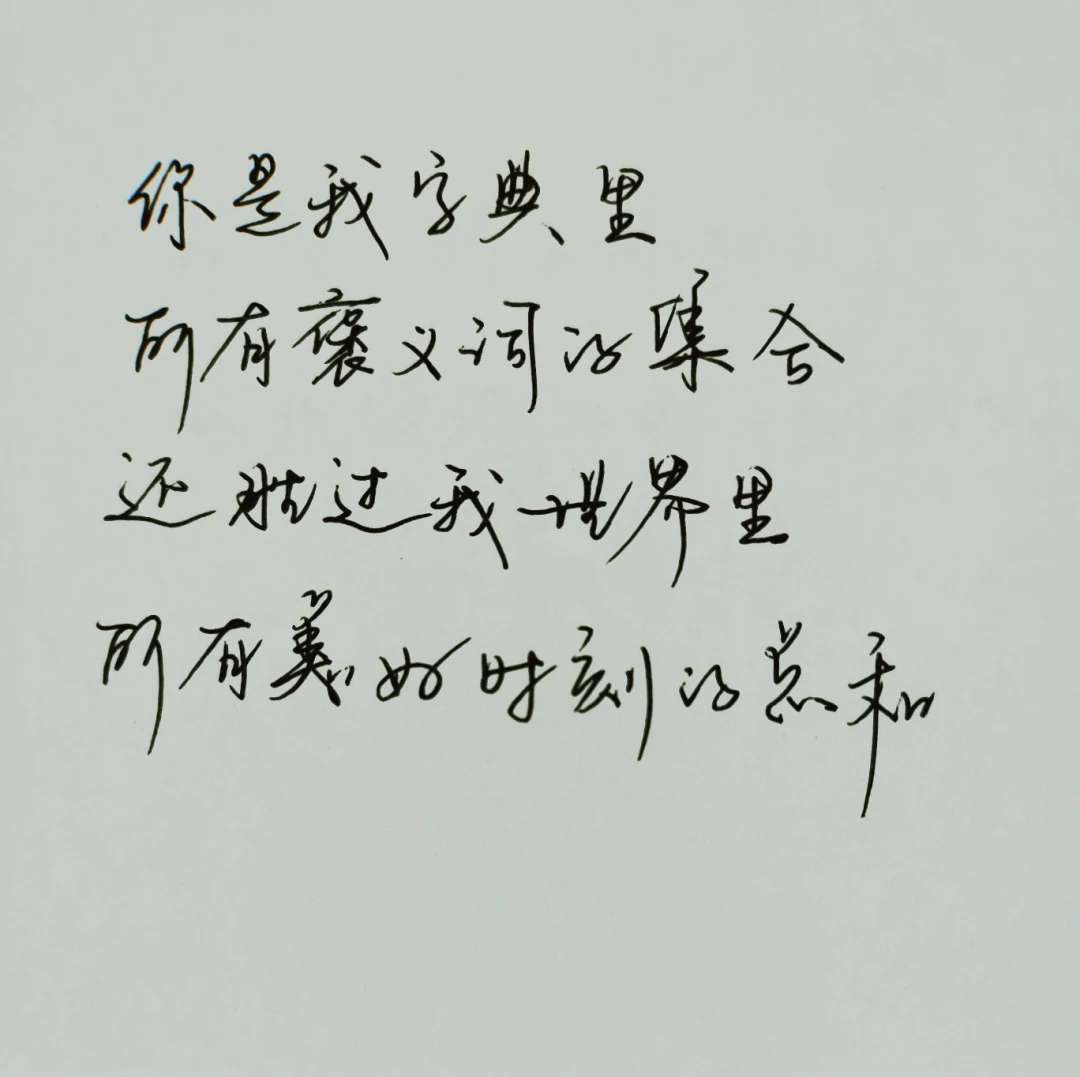 你是我字典里
所有褒义词的集合
还胜过我世界里
所有美好时刻的总和